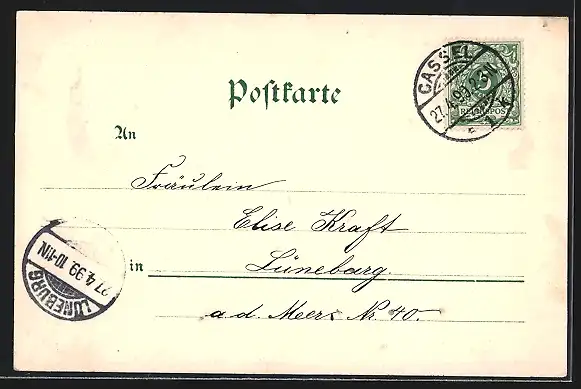 Postkarte
CASSEL
27.4.99.2-3N.
1 k
5
REICHSPOST
An
Fräulein
Elise Kraft
in Lüneburg.
a.d. Meers Nr 40.
LÜNEBURG
27.4.99.10-11N